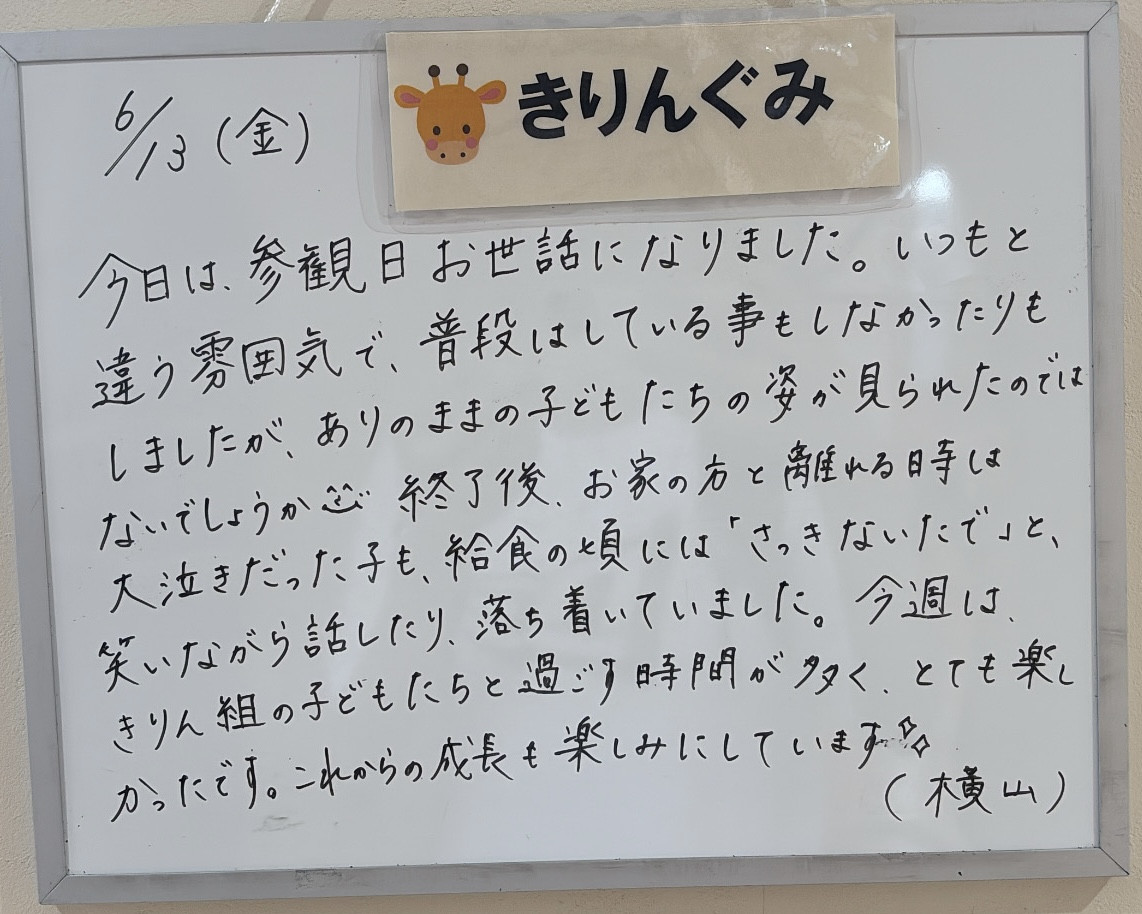 きりんぐみ
6/13（金）
今日は、参観日お世話になりました。いつもと
違う雰囲気で、普段はしている事もしなかったりも
しましたが、ありのままの子どもたちの姿が見られたのでは
ないでしょうか^^ 終了後、お家の方と離れる時は
大泣きだった子も、給食の頃には「さっきないたで」と、
笑いながら話したり、落ち着いていました。今週は、
きりん組の子どもたちと過ごす時間が多く、とても楽し
かったです。これからの成長も楽しみにしています✨
（横山）